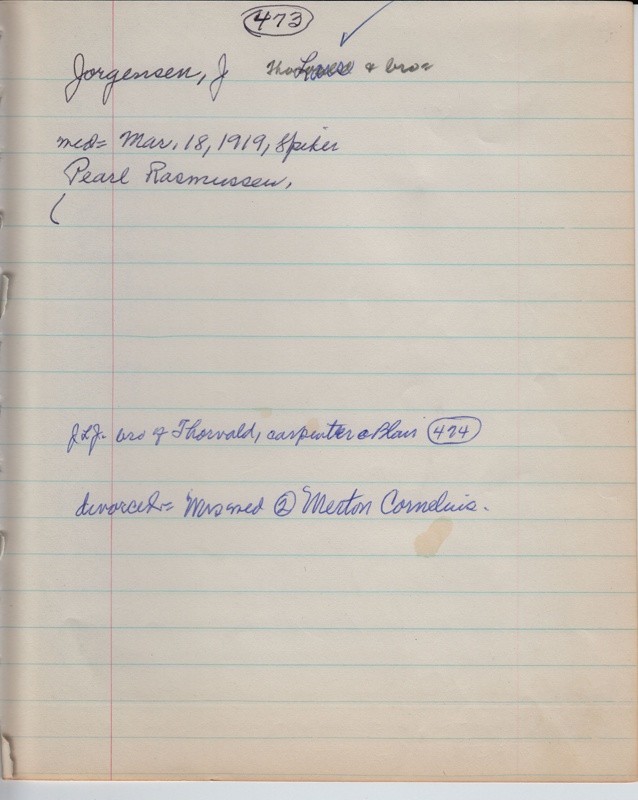 473
Jorgensen, J & bro
med= Mar. 18, 1919, Spiker
Pearl Rasmussen,
(
J.L.J. bro of Thorvald, carpenter c Blair 474
divorced:= Mrs med 2 Merton Cornelius.